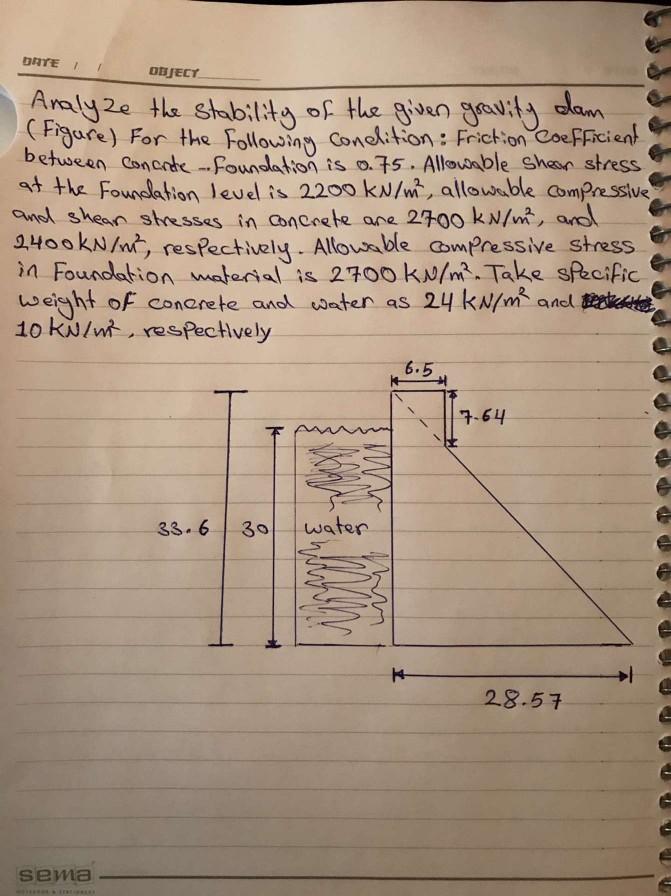 DATE / /
OBJECT
Analyze the stability of the given gravity dam
(Figure) For the Following Condition: Friction Coefficient
between Concrete - Foundation is 0.75. Allowable Shear stress
at the Foundation level is 2200 kN/m², allowable compressive
and shear stresses in concrete are 2700 kN/m², and
2400 kN/m², respectively. Allowable compressive stress
in Foundation material is 2700 kN/m². Take specific
weight of concrete and water as 24 kN/m² and
10 kN/m², respectively
6.5
7.64
33.6
30
water
28.57
sema